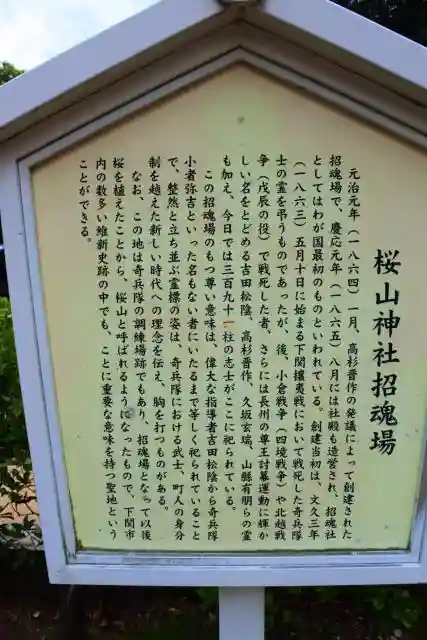 桜山神社招魂場
元治元年（一八六四）一月、高杉晋作の発議によって創建された
招魂場で、慶応元年（一八六五）八月には社殿も造営され、招魂社
としてはわが国最初のものといわれている。創建当初は、文久三年
（一八六三）五月十日に始まる下関攘夷戦において戦死した奇兵隊
士の霊を弔うものであったが、後、小倉戦争（四境戦争）や北越戦
争（戊辰の役）で戦死した者、さらには長州の尊王討幕運動に輝か
しい名をとどめる吉田松陰、高杉晋作、久坂玄瑞、山縣有朋らの霊
も加え、今日では三百九十一柱の志士がここに祀られている。
この招魂場のもつ尊い意味は、偉大な指導者吉田松陰から奇兵隊
小者弥吉といった名もない者にいたるまで等しく祀られていること
で、整然と立ち並ぶ霊標の姿は、奇兵隊における武士、町人の身分
制を越えた新しい時代への理念を伝え、胸を打つものがある。
なお、この地は奇兵隊の調練場跡でもあり、招魂場となって以後
桜を植えたことから、桜山と呼ばれるようになったもので、下関市
内の数多い維新史跡の中でも、ことに重要な意味を持つ聖地という
ことができる。